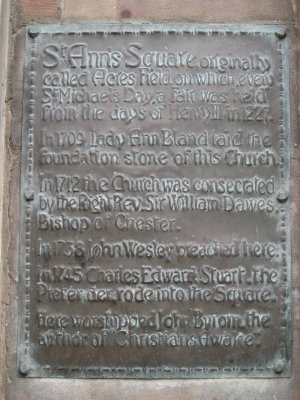 St Ann's Square, originally
called Acres Field on which, every
St Michael's Day, a Fair was held
from the days of Henry III in 1227.
In 1709 Lady Ann Bland laid the
foundation stone of this Church.
In 1712 the Church was consecrated
by the Right Rev. Sir William Dawes,
Bishop of Chester.
In 1738 John Wesley preached here.
In 1745 Charles Edward Stuart, the
Pretender, rode into the Square.
Here worshipped John Byrom the
author of "Christians Awake".